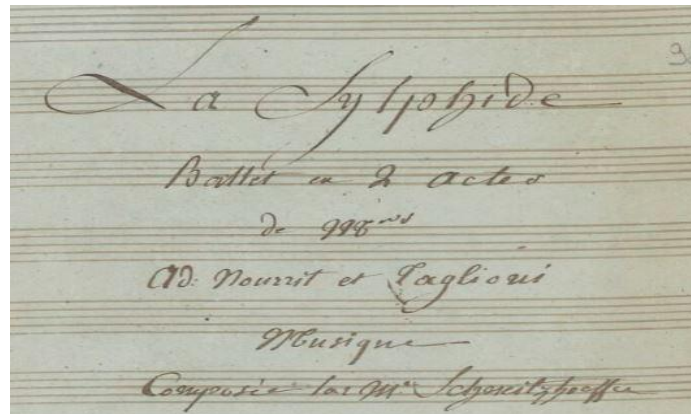 La Sylphide
Ballet en 2 actes
de MM.rs
Ad. Nourrit et Taglioni
Musique
Composée par Mr. Schneitzhoeffer